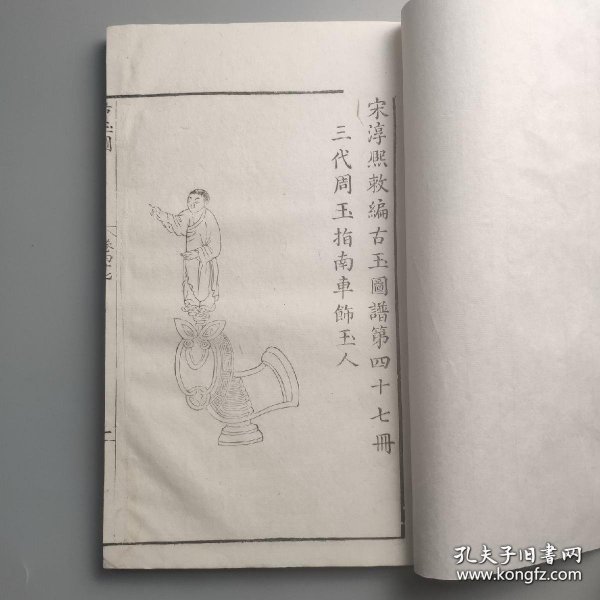 宋淳熙敕編古玉圖譜第四十七冊
三代周玉指南車飾玉人
卷四十七
孔夫子旧書网
www.kongfz.com